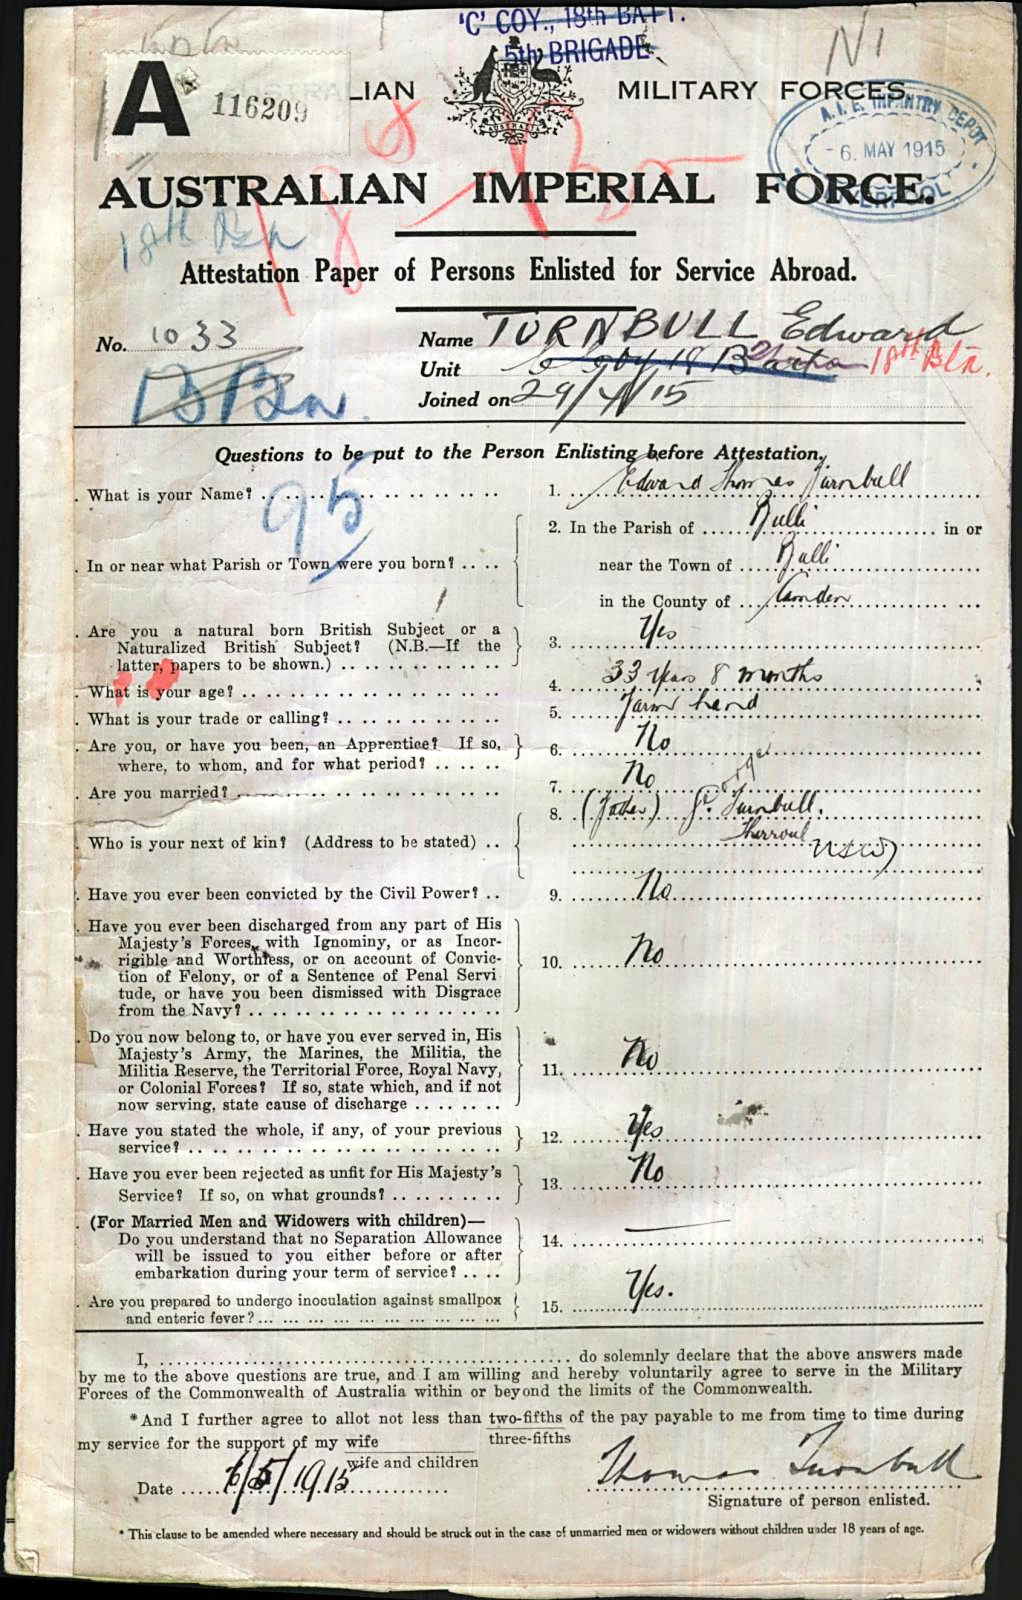 'C' COY., 18th BATT.
5th BRIGADE
N1
A 116209
LIAN MILITARY FORCES.
A.I.F. INFANTRY DEPOT
-6. MAY 1915
LIVERPOOL
AUSTRALIA
AUSTRALIAN IMPERIAL FORCE.
18th Bn
18
Attestation Paper of Persons Enlisted for Service Abroad.
No. 1033 Name TURNBULL Edward
Unit C Coy 18 Batt 18th Btn.
Joined on 29/4/15
18 Bn.
Questions to be put to the Person Enlisting before Attestation.
95
. What is your Name? 1. Edward Thomas Turnbull
2. In the Parish of Bulli in or
. In or near what Parish or Town were you born? near the Town of Bulli
in the County of Camden
. Are you a natural born British Subject or a
Naturalized British Subject? (N.B.—If the 3. Yes
latter, papers to be shown.)
. What is your age? 4. 33 years 8 months
. What is your trade or calling? 5. Farm hand
. Are you, or have you been, an Apprentice? If so, 6. No
where, to whom, and for what period?
. Are you married? 7. No
8. (Father) George Turnbull.
. Who is your next of kin? (Address to be stated) Thirroul
NSW
. Have you ever been convicted by the Civil Power? 9. No
. Have you ever been discharged from any part of His
Majesty's Forces, with Ignominy, or as Incor-
rigible and Worthless, or on account of Convic- 10. No
tion of Felony, or of a Sentence of Penal Servi
tude, or have you been dismissed with Disgrace
from the Navy?
. Do you now belong to, or have you ever served in, His
Majesty's Army, the Marines, the Militia, the
Militia Reserve, the Territorial Force, Royal Navy, 11. No
or Colonial Forces? If so, state which, and if not
now serving, state cause of discharge
. Have you stated the whole, if any, of your previous 12. Yes
service?
. Have you ever been rejected as unfit for His Majesty's 13. No
Service? If so, on what grounds?
. (For Married Men and Widowers with children)—
Do you understand that no Separation Allowance 14. —
will be issued to you either before or after
embarkation during your term of service?
. Are you prepared to undergo inoculation against smallpox 15. Yes.
and enteric fever?
I, do solemnly declare that the above answers made
by me to the above questions are true, and I am willing and hereby voluntarily agree to serve in the Military
Forces of the Commonwealth of Australia within or beyond the limits of the Commonwealth.
*And I further agree to allot not less than two-fifths of the pay payable to me from time to time during
three-fifths
my service for the support of my wife
wife and children
Date 6/5/1915 Thomas Turnbull
Signature of person enlisted.
* This clause to be amended where necessary and should be struck out in the case of unmarried men or widowers without children under 18 years of age.